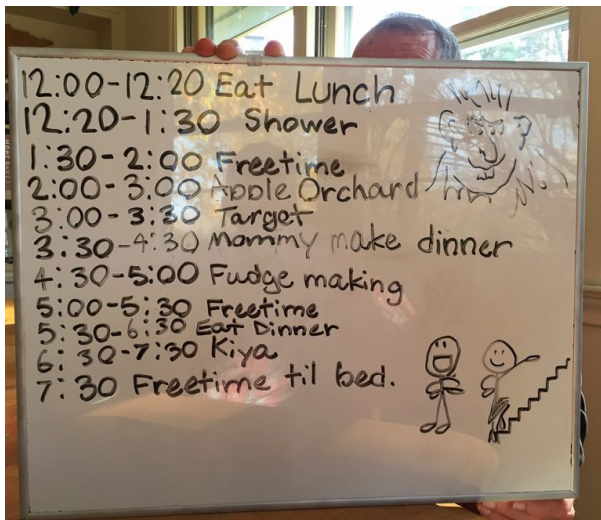 12:00-12:20 Eat Lunch
12:20-1:30 Shower
1:30-2:00 Freetime
2:00-3:00 Apple Orchard
3:00-3:30 Target
3:30-4:30 Mommy make dinner
4:30-5:00 Fudge making
5:00-5:30 Freetime
5:30-6:30 Eat Dinner
6:30-7:30 Kiya
7:30 Freetime til bed.